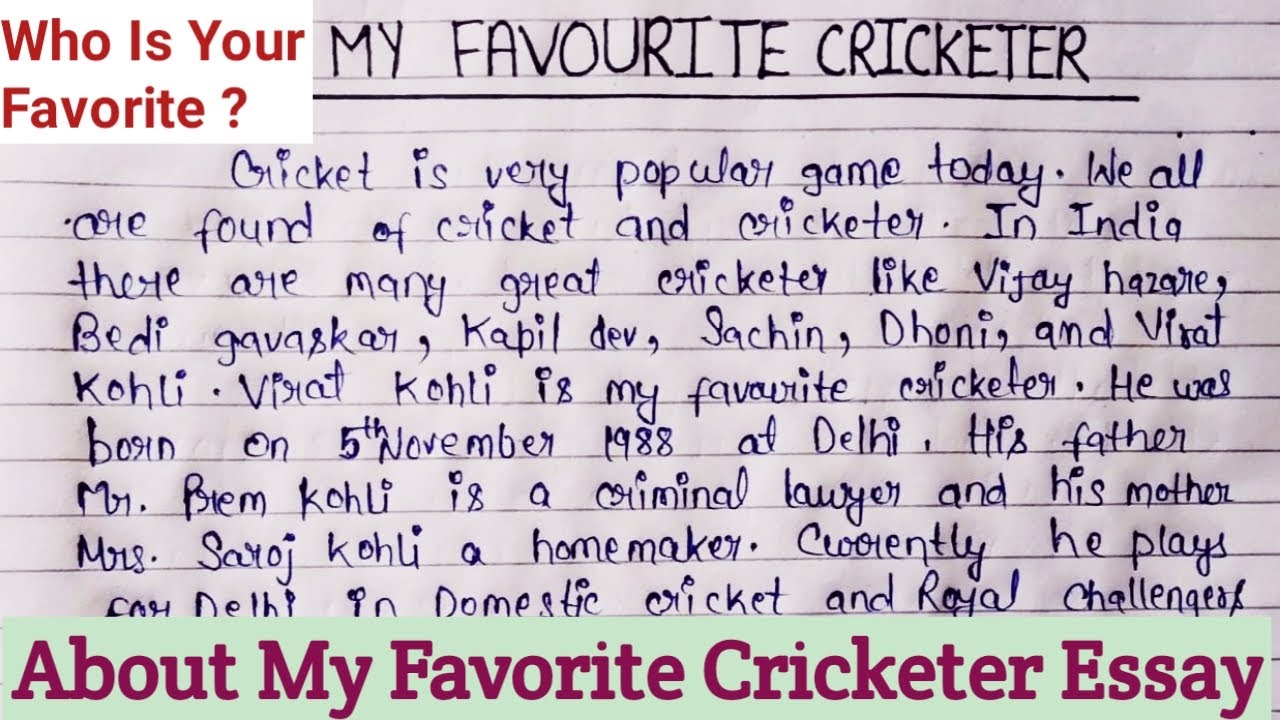 Who Is Your
Favorite ?
MY FAVOURITE CRICKETER
Cricket is very popular game today. We all
are found of cricket and cricketer. In India
there are many great cricketer like Vijay hazare,
Bedi gavaskar, Kapil dev, Sachin, Dhoni, and Virat
Kohli. Virat Kohli is my favourite cricketer. He was
born on 5th November 1988 at Delhi. His father
Mr. Prem Kohli is a criminal lawyer and his mother
Mrs. Saroj Kohli a homemaker. Currently he plays
for Delhi in Domestic cricket and Royal Challengers
About My Favorite Cricketer Essay